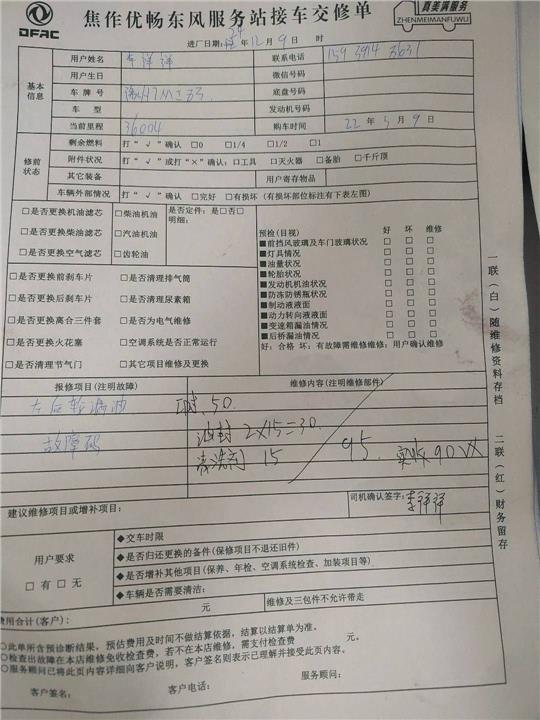 DFAC
焦作优畅东风服务站接车交修单
真美满服务
ZHENMEIMANFUWU
进厂日期: 24年12月9日 时
基本信息
用户姓名 李祥祥 联系电话
用户生日 微信号码
车牌号 底盘号码
车型 发动机号码
当前里程 36004 购车时间 22年5月9日
修前状态
剩余燃料 打“√”确认 □0 □1/4 □1/2 □1
附件状况 打“√”或打“×”确认: □工具 □灭火器 □备胎 □千斤顶
其它装备 用户寄存物品
车辆外部情况 打“√”确认 □完好 □有损坏 (有损坏部位标注有下表左图)
□是否更换机油滤芯 □柴油机油 是否定件: 是□否□
□是否更换柴油滤芯 □汽油机油 明细:
□是否更换空气滤芯 □齿轮油
□是否更换前刹车片 □是否清理排气筒
□是否更换后刹车片 □是否清理尿素箱
□是否更换离合三件套 □是否为电气维修
□是否更换火花塞 □空调系统是否正常运行
□是否清理节气门 □其它项目维修及更换
预检(目视) 好 坏 维修
■前挡风玻璃及车门玻璃状况 □ □ □
■灯具情况 □ □ □
■油量状况 □ □ □
■轮胎状况 □ □ □
■发动机机油状况 □ □ □
■防冻防锈瓶状况 □ □ □
■制动液液面 □ □ □
■动力转向液液面 □ □ □
■变速箱漏油情况 □ □ □
■后桥漏油情况 □ □ □
好: 合格 坏: 有故障需维修维修: 用户确认维修
报修项目(注明故障) 维修内容(注明维修部件)
左后轮漏油 工时 50
故障码 油封 2×15=30
清洗剂 15 95. 实收90
建议维修项目或增补项目: 司机确认签字: 李祥祥
用户要求
□有 □无
◆交车时限
◆是否归还更换的备件(保修项目不退还旧件)
◆是否增补其他项目(保养、年检、空调系统检查、加装项目等)
◆车辆是否需要清洁:
元 维修及三包件不允许带走
费用合计(客户):
○此单所含预诊断结果, 预估费用及时间不做结算依据, 结算以结算单为准。
○检查出故障在本店维修免收检查费, 若不在本店维修, 需支付检查费 元。
○服务顾问已将此页内容详细向客户说明, 客户签名则表示已理解并接受此页内容。
客户签名: 客户电话: 服务顾问:
一联(白)随维修资料存档 二联(红)财务留存